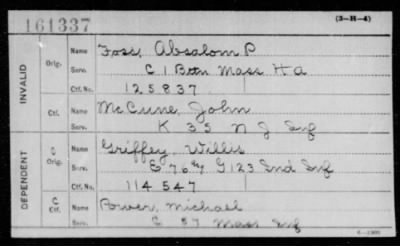 161337 (3-H-4)
INVALID
Orig. Name Foss, Absalom P
Serv. C 1 Battn Mass H A
Ctf. No. 125837
Ctf. Name McCune, John
Serv. K 35 N J Inf
DEPENDENT
C Orig. Name Griffey, Willis
Serv. E 76 & G 123 Ind Inf
Ctf. No. 114547
C Ctf. Name Power, Michael
Serv. C 57 Mass Inf